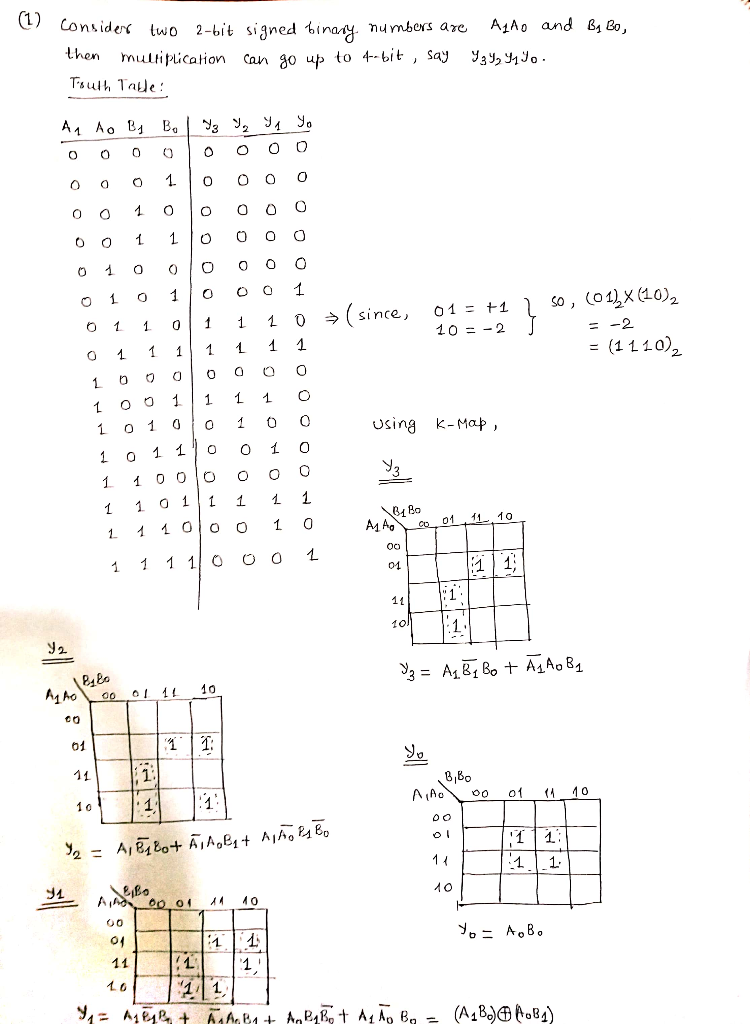 (1) Consider two 2-bit signed binary numbers are A1A0 and B1B0,
then multiplication can go up to 4-bit, say y3y2y1y0.
Truth Table:
A1 A0 B1 B0 | y3 y2 y1 y0
0 0 0 0 | 0 0 0 0
0 0 0 1 | 0 0 0 0
0 0 1 0 | 0 0 0 0
0 0 1 1 | 0 0 0 0
0 1 0 0 | 0 0 0 0
0 1 0 1 | 0 0 0 1
0 1 1 0 | 1 1 1 0 ⇒ (since, 01 = +1 } so, (01)2 X (10)2
10 = -2 = -2
0 1 1 1 | 1 1 1 1 = (1110)2
1 0 0 0 | 0 0 0 0
1 0 0 1 | 1 1 1 0
1 0 1 0 | 0 1 0 0
1 0 1 1 | 0 0 1 0
1 1 0 0 | 0 0 0 0
1 1 0 1 | 1 1 1 1
1 1 1 0 | 0 0 1 0
1 1 1 1 | 0 0 0 1
Using K-Map,
y3
B1B0
A1A0 00 01 11 10
00
01 1 1
11 1
10 1
y3 = A1B̅1B0 + A̅1A0B1
y2
B1B0
A1A0 00 01 11 10
00
01 1 1
11 1
10 1 1
y2 = A1B̅1B0 + A̅1A0B1 + A1A̅0B1B̅0
y0
B1B0
A1A0 00 01 11 10
00
01 1 1
11 1 1
10
y0 = A0B0
y1
B1B0
A1A0 00 01 11 10
00
01 1 1
11 1 1
10 1 1
y1 = A1B̅1B0 + A̅1A0B1 + A0B1B̅0 + A1A̅0B0 = (A1B0)⊕(A0B1)